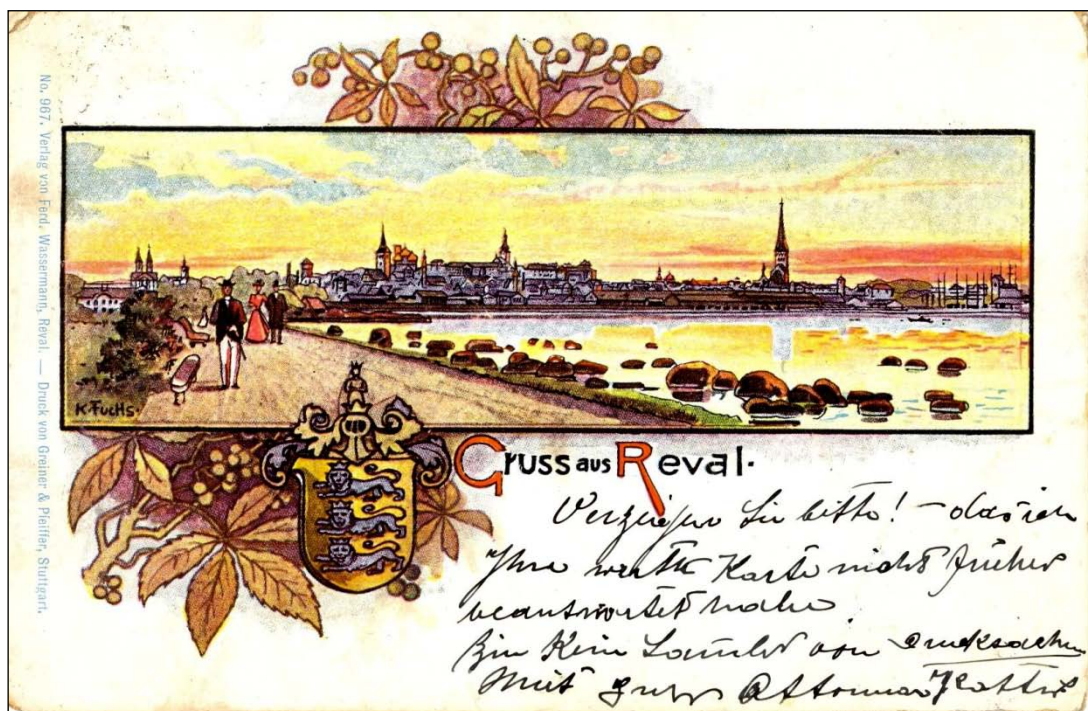 No. 967. Verlag von Ferd. Wassermann, Reval. — Druck von Greiner & Pfeiffer, Stuttgart.
K. Fuchs.
Gruss aus Reval.
Verzeihen Sie bitte! – das ich
Ihre werthe Karte nicht früher
beantwortet habe
Bin Kein Samler von Drucksachen
Mit Gruss